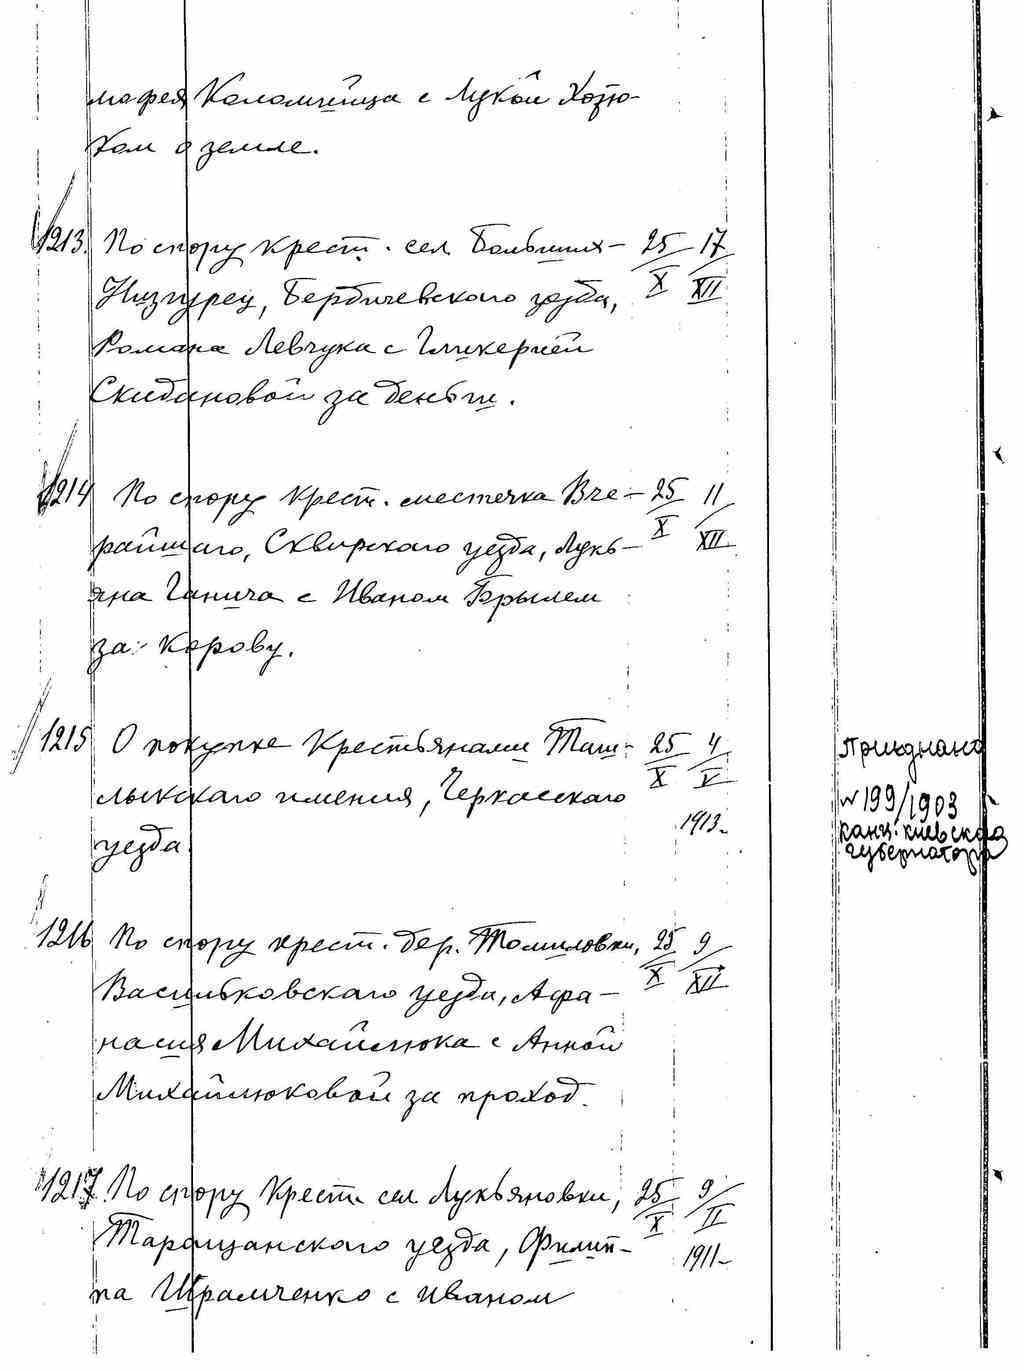 мафея Коломийца с Лукой Хозю-
ком о земле.
1213. По спору крест. сел Больших- 25/X 17/XII
Низгурец, Бердичевского уезда,
Романа Левчука с Гликерией
Скидановой за деньги.
1214 По спору крест. местечка Вче- 25/X 11/XII
райшаго, Сквирского уезда, Лукь-
яна Ганича с Иваном Брылем
за корову.
1215 О покупке крестьянами Таш- 25/X 4/V
лыкскаго имения, Черкасскаго 1913-
уезда
Приєднано
№ 199/1903
канц. киевского
губернатора
1216 По спору крест. дер. Томиловки, 25/X 9/XII
Васильковскаго уезда, Афа-
насия Михайлюка с Анной
Михайлюковой за проход.
1217. По спору крест сел Лукьяновки, 25/X 9/II
Таращанского уезда, Филип- 1911-
па Шрамченко с Иваном